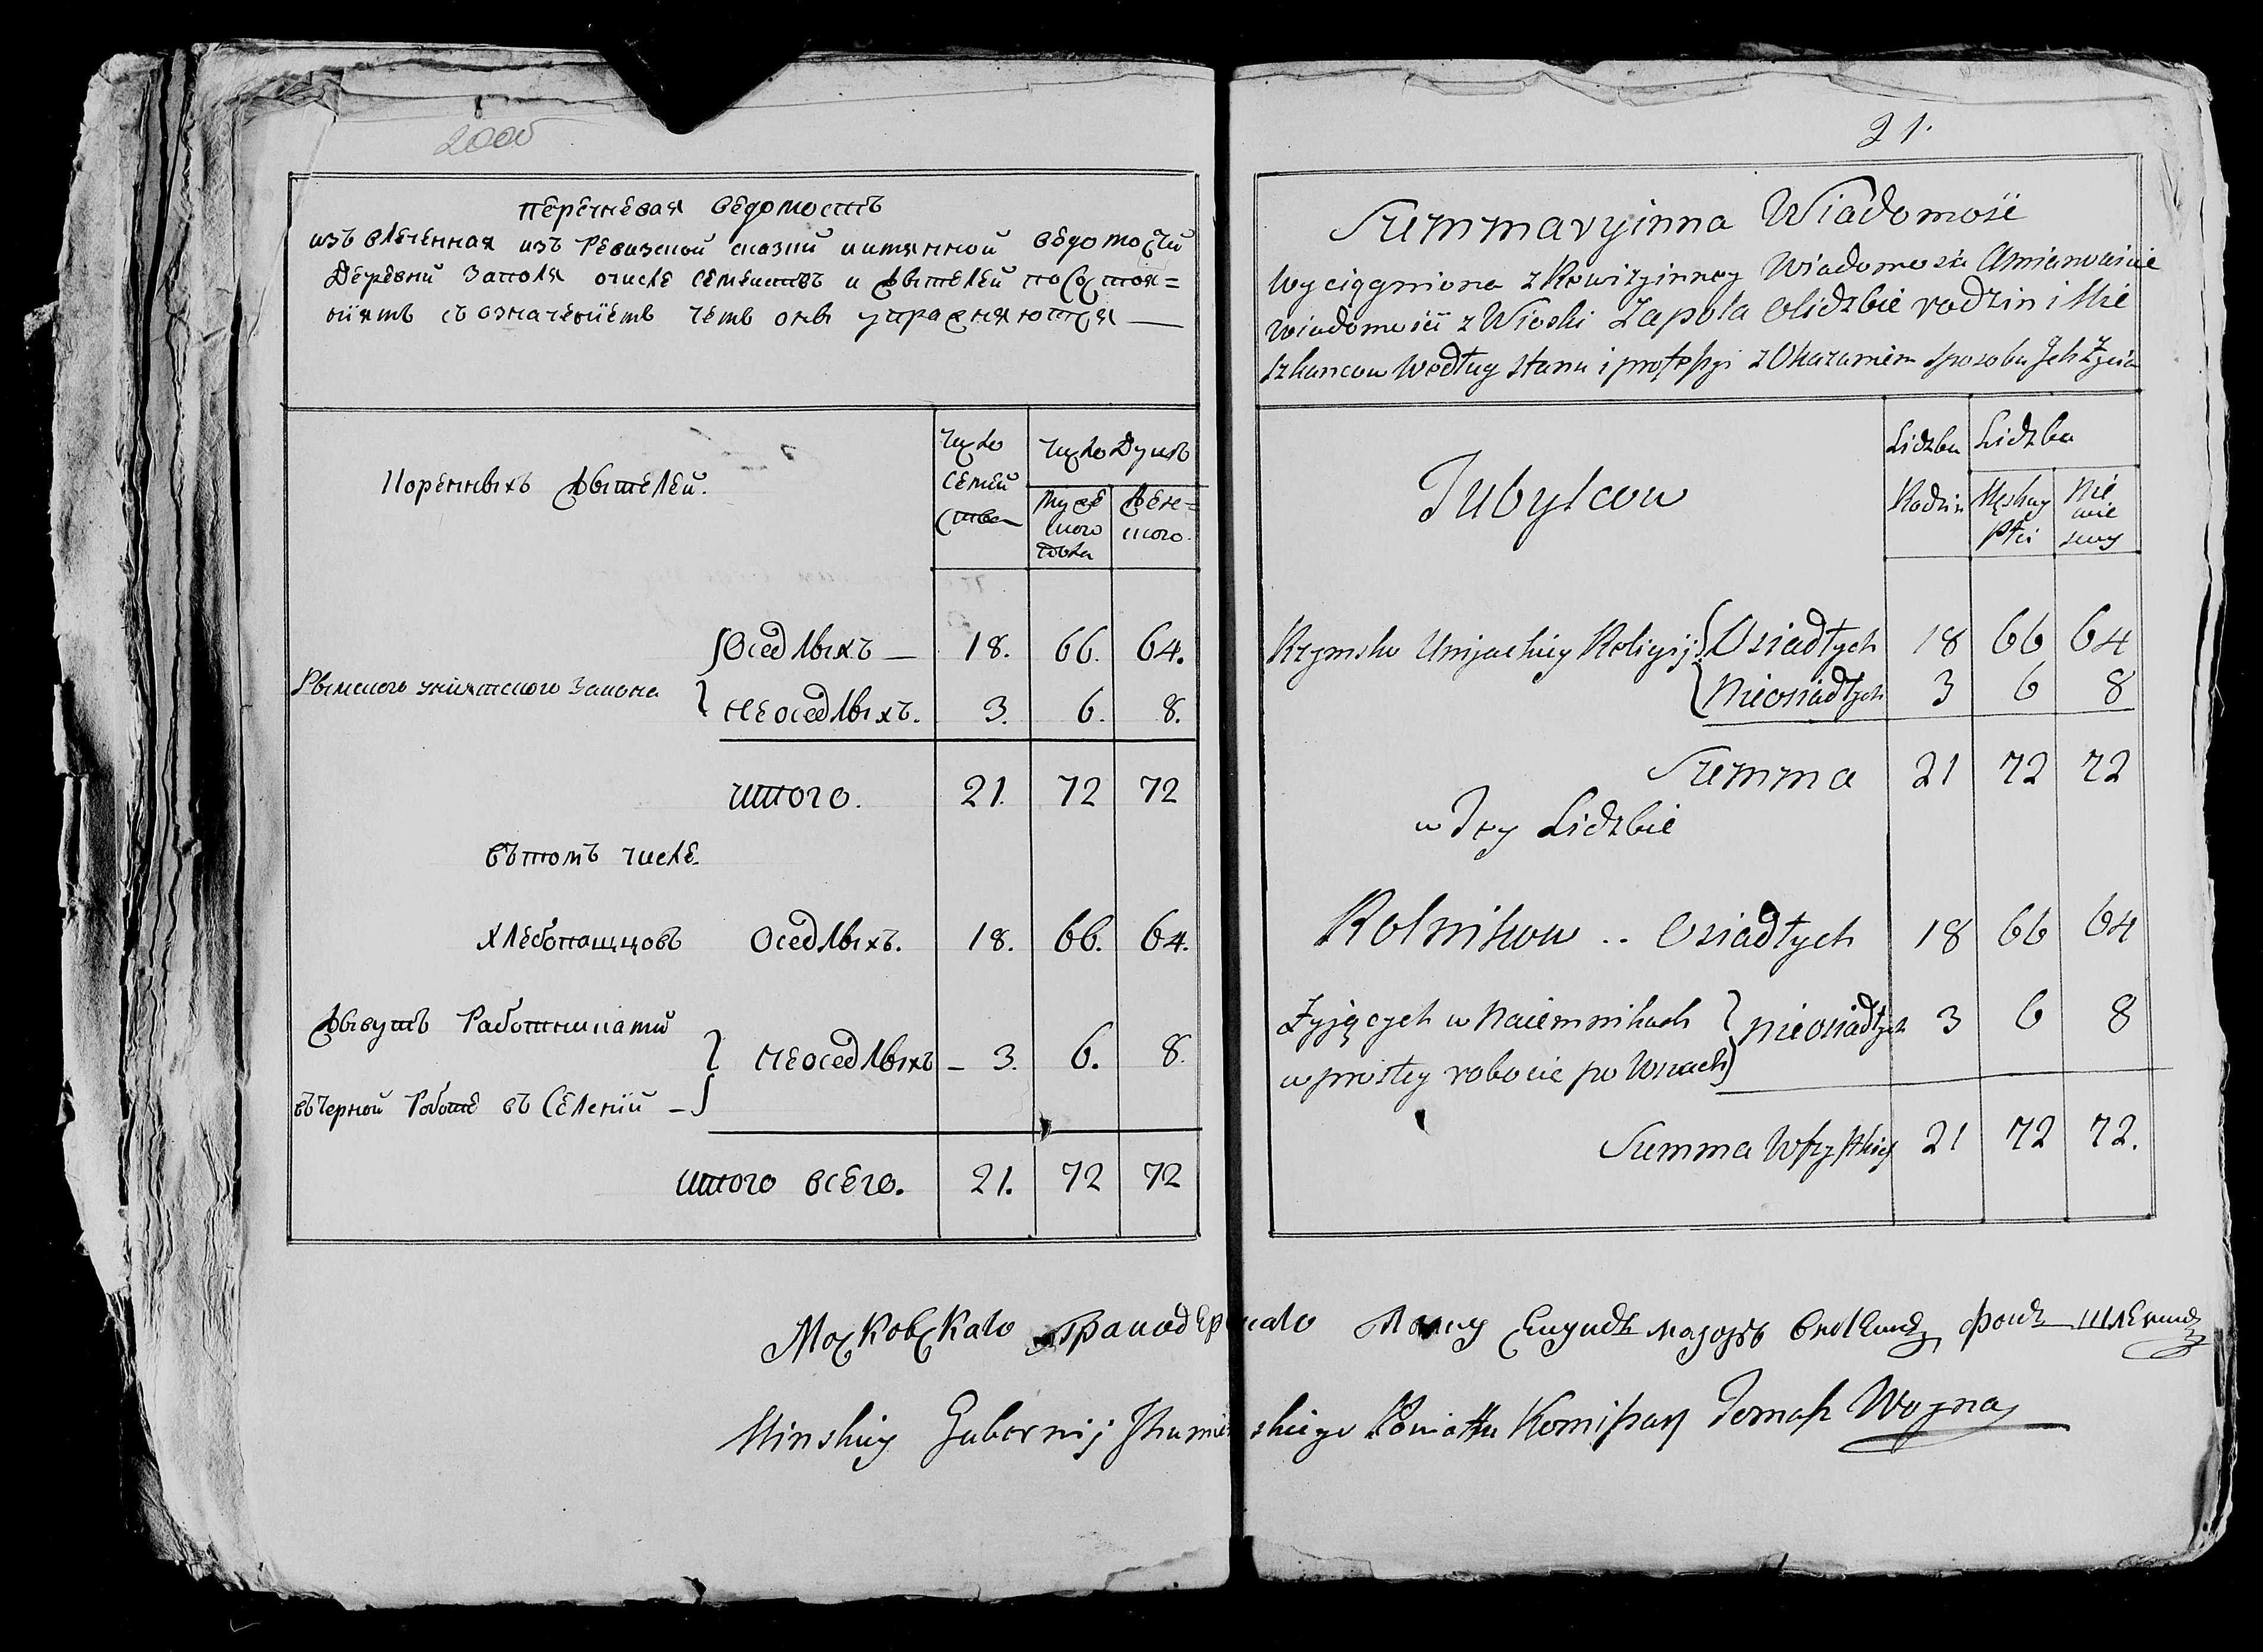 20об
перечневая ведомость
изъ влеченная изъ Ревизской сказки иимянной ведомости
Деревни Заполя очисле семействъ и жителей посостоя=
ниямъ съозначениемъ чемъ они упражняются
Коренныхъ жителей.
число семей ства
число Душъ
муже ского пола
жен= ского.
Рымского униятского Закона
Оседлыхъ — 18. 66. 64.
неоседлыхъ. 3. 6. 8.
итого. 21. 72 72
вътомъ числе.
хлебопащцовъ оседлыхъ. 18. 66. 64.
живутъ Работниками
неоседлыхъ – 3. 6. 8.
въчерной Работе въ Селении –
итого всего. 21. 72 72
21.
Summaryinna Wiadomość
Wyciągniona z Rewizyinney Wiadomości
Wiadomości z Wioski Zapola Olidzbie rodzin i Mie
szkancow Według stanu i professyi z Okazaniem sposobu Jch Życia
Tubylcow
Lidzba Rodzin
Lidzba
Męskiey płci
Nie wie sciey
Rzymsko Unijackiey Religij Osiadłych 18 66 64
Nieosiadłych 3 6 8
Summa 21 72 72
w Tey Lidzbie
Rolnikow .. Osiadłych 18 66 64
Żyjących w Naiemnikach
nieosiadłych 3 6 8
w prostey robocie po Wsiach
Summa Wszystkich 21 72 72.
Московскаго Гранодерскаго полку маіоръ фонъ
Minskiey Gubernij Jhumenskiego Powiatu Komissarz Tomasz Woyna